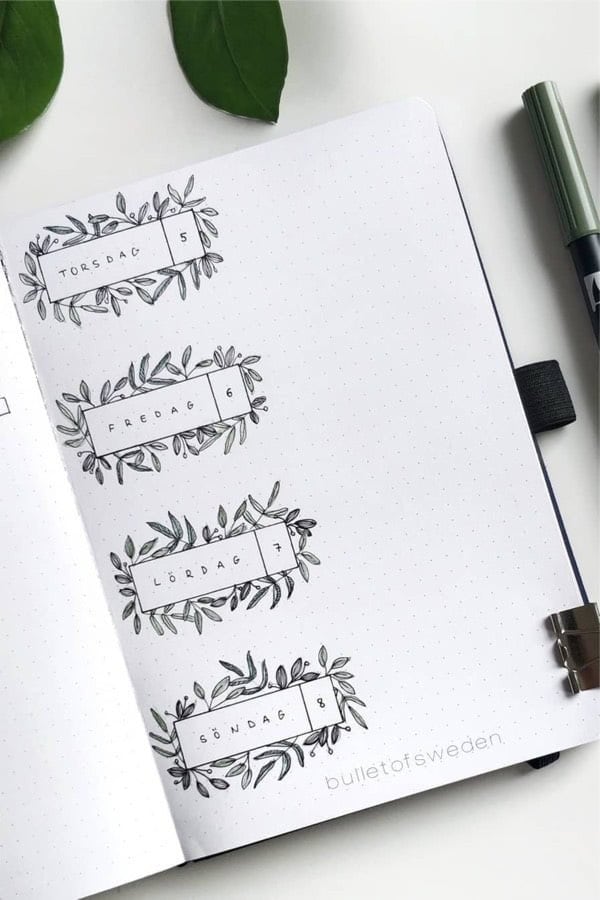 TORSDAG 5
FREDAG 6
LÖRDAG 7
SÖNDAG 8
bulletofsweden